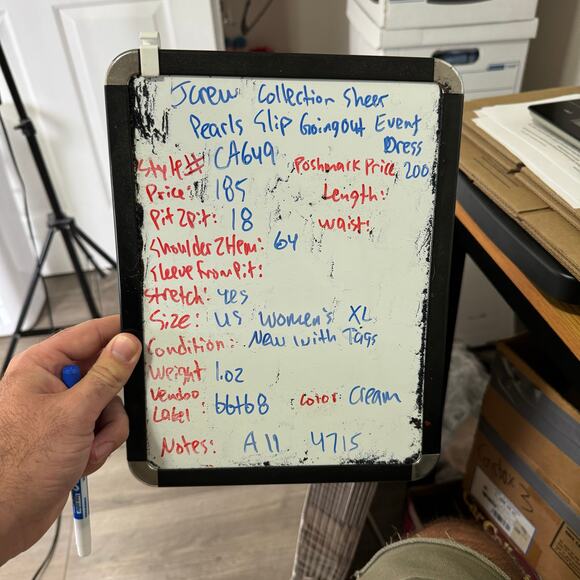 Jcrew Collection Sheer
Pearls Slip Going Out Event
Dress
Style# CA649 Poshmark Price 200
Price: 185 Length:
Pit2Pit: 18 Waist:
Shoulder2Hem: 64
Sleeve From Pit:
Stretch: yes
Size: US Women's XL
Condition: New With Tags
Weight 1.02
Vendoo
Label: 66468 Color: Cream
Notes: A11 4715